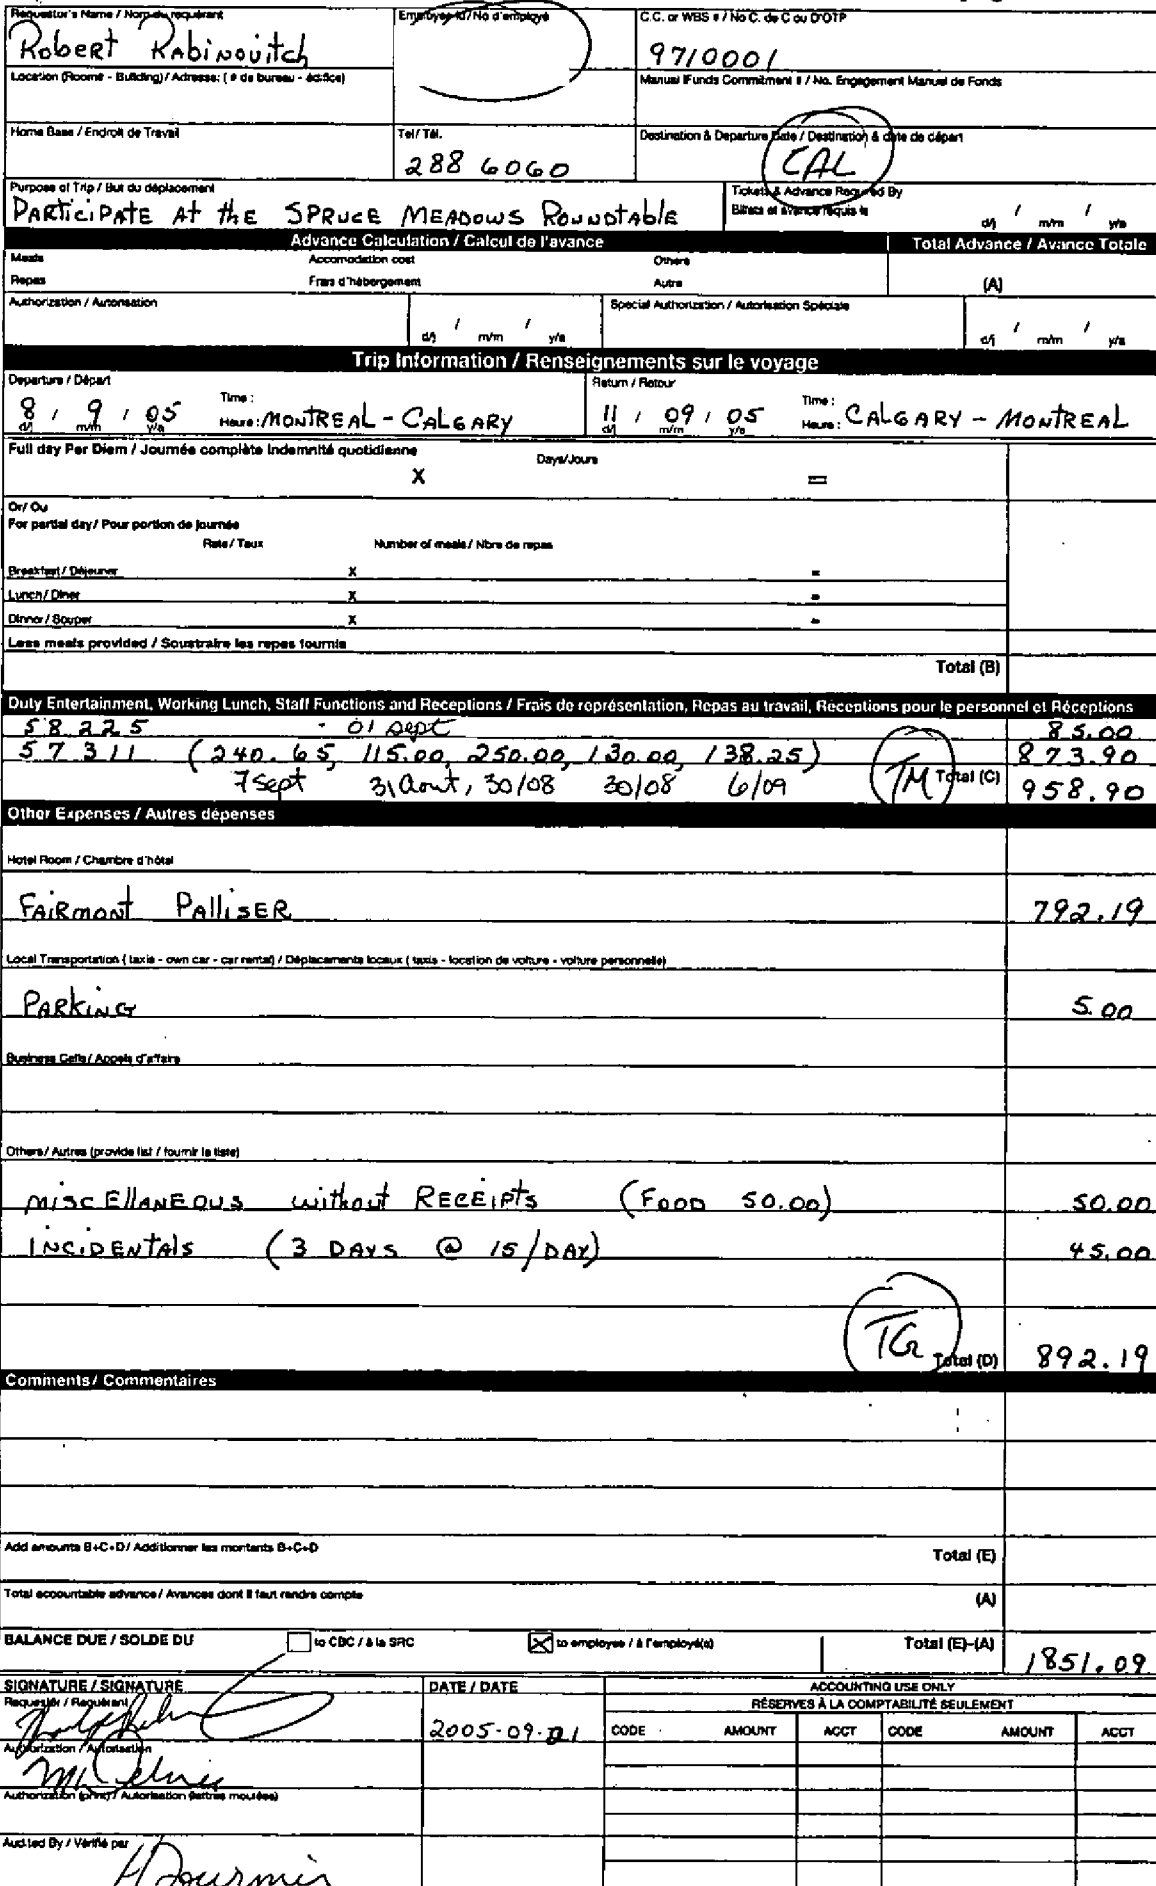 Requestor's Name / Nom du requérant
Robert Rabinovitch
Employee Id / No d'employé
C.C. or WBS # / No C. de C ou D'OTP
9710001
Location (Rooms - Building) / Adresse: ( # de bureau - édifice)
Manual Funds Commitment # / No. Engagement Manuel de Fonds
Home Base / Endroit de Travail
Tel / Tél.
288 6060
Destination & Departure Date / Destination & date de départ
CAL
Purpose of Trip / But du déplacement
PARTICIPATE At the SPRUCE MEADOWS ROUNDTABLE
Tickets & Advance Required By
Billets et avance requis le
d/j / m/m / y/a
Advance Calculation / Calcul de l'avance
Total Advance / Avance Totale
Meals Accomodation cost Others
Repas Frais d'hébergement Autre (A)
Authorization / Autorisation
d/j / m/m / y/a
Special Authorization / Autorisation Spéciale
d/j / m/m / y/a
Trip Information / Renseignements sur le voyage
Departure / Départ
8 / 9 / 05
d/j m/m y/a
Time :
Heure : MONTREAL - CALGARY
Return / Retour
11 / 09 / 05
d/j m/m y/a
Time :
Heure : CALGARY - MONTREAL
Full day Per Diem / Journée complète Indemnité quotidienne
Days/Jours
X =
Or/ Ou
For partial day / Pour portion de journée
Rate / Taux Number of meals / Nbre de repas
Breakfast / Déjeuner X =
Lunch / Dîner X =
Dinner / Souper X =
Less meals provided / Soustraire les repas fournis
Total (B)
Duty Entertainment, Working Lunch, Staff Functions and Receptions / Frais de représentation, Repas au travail, Réceptions pour le personnel et Réceptions
58225 - 01 sept 85.00
57311 (240.65, 115.00, 250.00, 130.00, 138.25) 873.90
7 sept 31 aout, 30/08 30/08 6/09
TM
Total (C) 958.90
Other Expenses / Autres dépenses
Hotel Room / Chambre d'hôtel
FAIRMONT PALLISER 792.19
Local Transportation ( taxis - own car - car rental) / Déplacements locaux ( taxis - location de voiture - voiture personnelle)
PARKING 5.00
Business Calls / Appels d'affaire
Others / Autres (provide list / fournir la liste)
MISCELLANEOUS without RECEIPTS (FOOD 50.00) 50.00
INCIDENTALS (3 DAYS @ 15/DAY) 45.00
Total (D) 892.19
Comments / Commentaires
Add amounts B+C+D / Additionner les montants B+C+D
Total (E)
Total accountable advance / Avances dont il faut rendre compte
(A)
BALANCE DUE / SOLDE DU
to CBC / à la SRC
to employee / à l'employé(e)
Total (E)-(A)
1851.09
SIGNATURE / SIGNATURE DATE / DATE
Requestor / Requérant
2005-09-21
Authorization / Autorisation
Authorization (print) / Autorisation (lettres moulées)
Audited By / Vérifié par
ACCOUNTING USE ONLY
RÉSERVES À LA COMPTABILITÉ SEULEMENT
CODE AMOUNT ACCT CODE AMOUNT ACCT